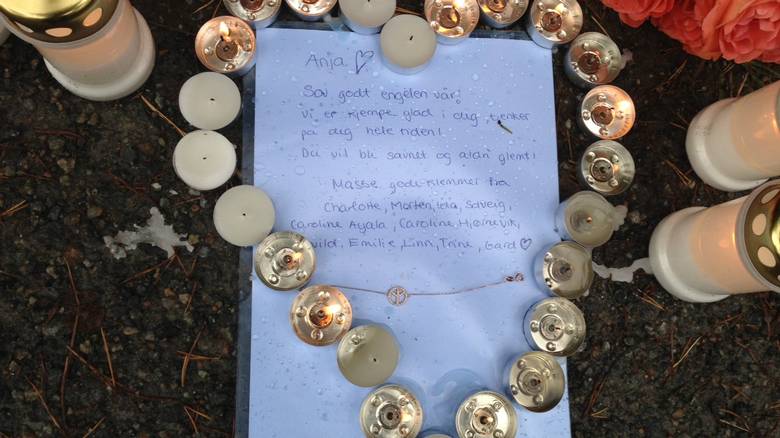 Anja ♡
Sov godt engelen vår!
Vi er kjempe glad i deg, tenker
på deg hele tiden!
Du vil bli savnet og aldri glemt!
Masse gode klemmer fra
Charlotte, Morten, Ida, Solveig,
Caroline Ayala, Caroline
Emilie, Linn, Trine, Gard ♡